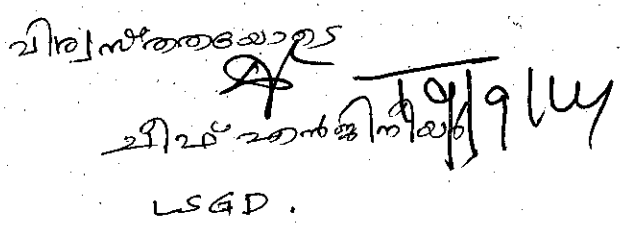 വിശ്വസ്തതയോടെ
ചീഫ് എൻജിനീയർ
LSGD.